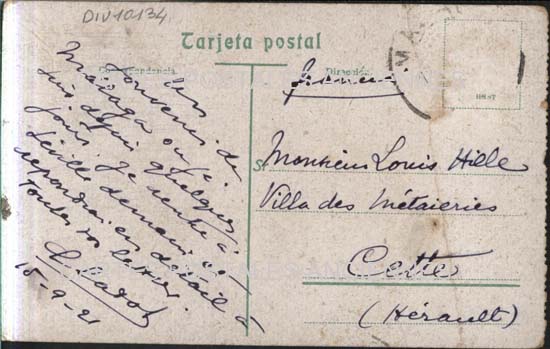 DIV10134
Tarjeta postal
Correspondencia
Dirección
Un
souvenir de
Malaga où je
suis depuis quelques
jours. Je rentre à
Séville demain et
repondrai en détail à
toutes vos lettres.
15-9-21
Monsieur Louis Hille
Villa des Métairies
Cette
(Hérault)